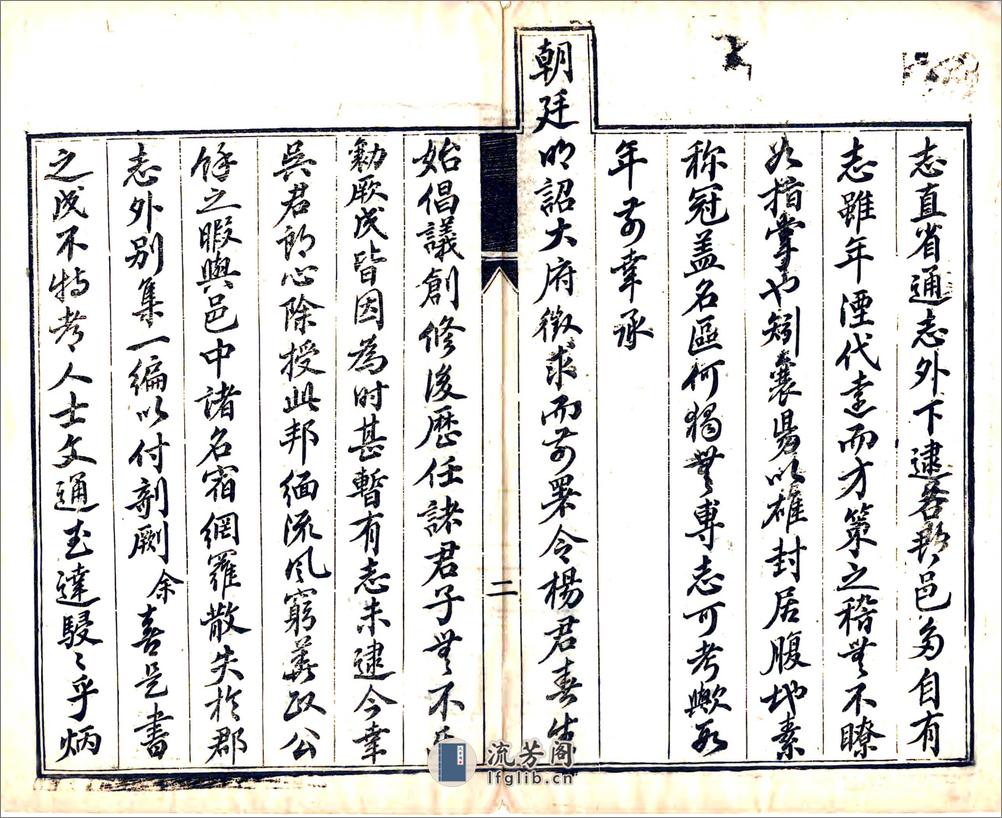 志直省通志外下逮各郡邑多自有
志雖年湮代遠而方策之稽無不瞭
如指掌也矧襄陽以雄封居腹地素
称冠盖名區何獨無專志可考歟
年前幸承
朝廷明詔大府徵求而前署令楊君春
始倡議創修後歷任諸君子無不
勷厥成皆因為时甚暫有志未逮今幸
吳君郎心除授此邦緬流风窮善政公
餘之暇與邑中諸名宿網羅散失於郡
志外別集一編以付剞劂余喜是書
之成不特考人士文通玄達駸〻乎炳
二
流芳阁
lfglib.cn